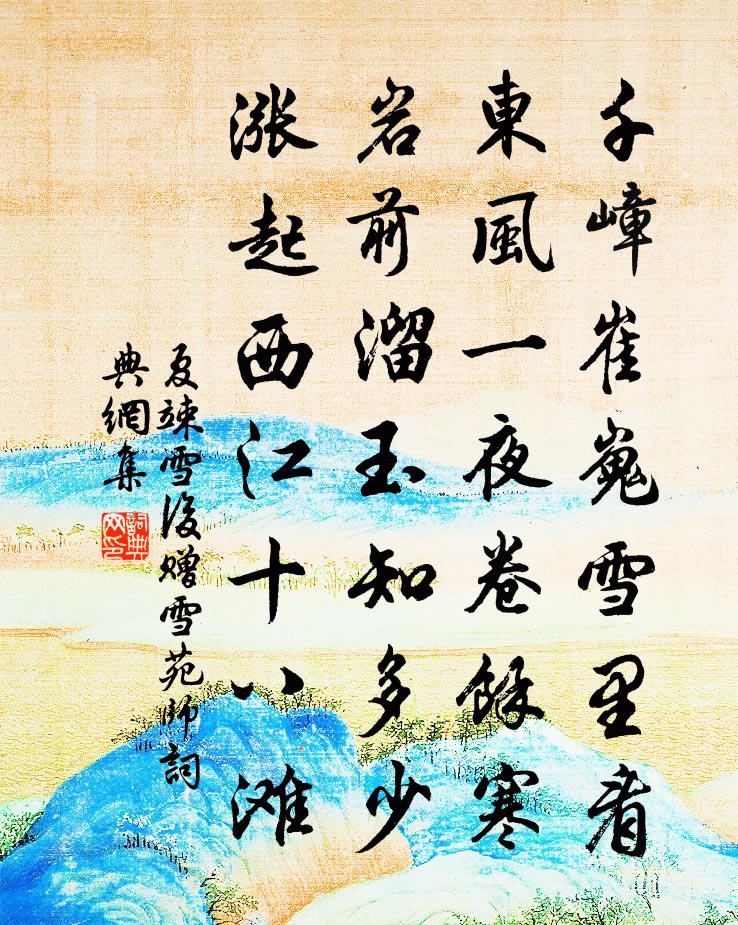 千嶂崔嵬雪里看
東風一夜卷餘寒
岩前溜玉知多少
漲起西江十八滩
夏竦雪後赠雪苑師詞
典網集
詞典网印